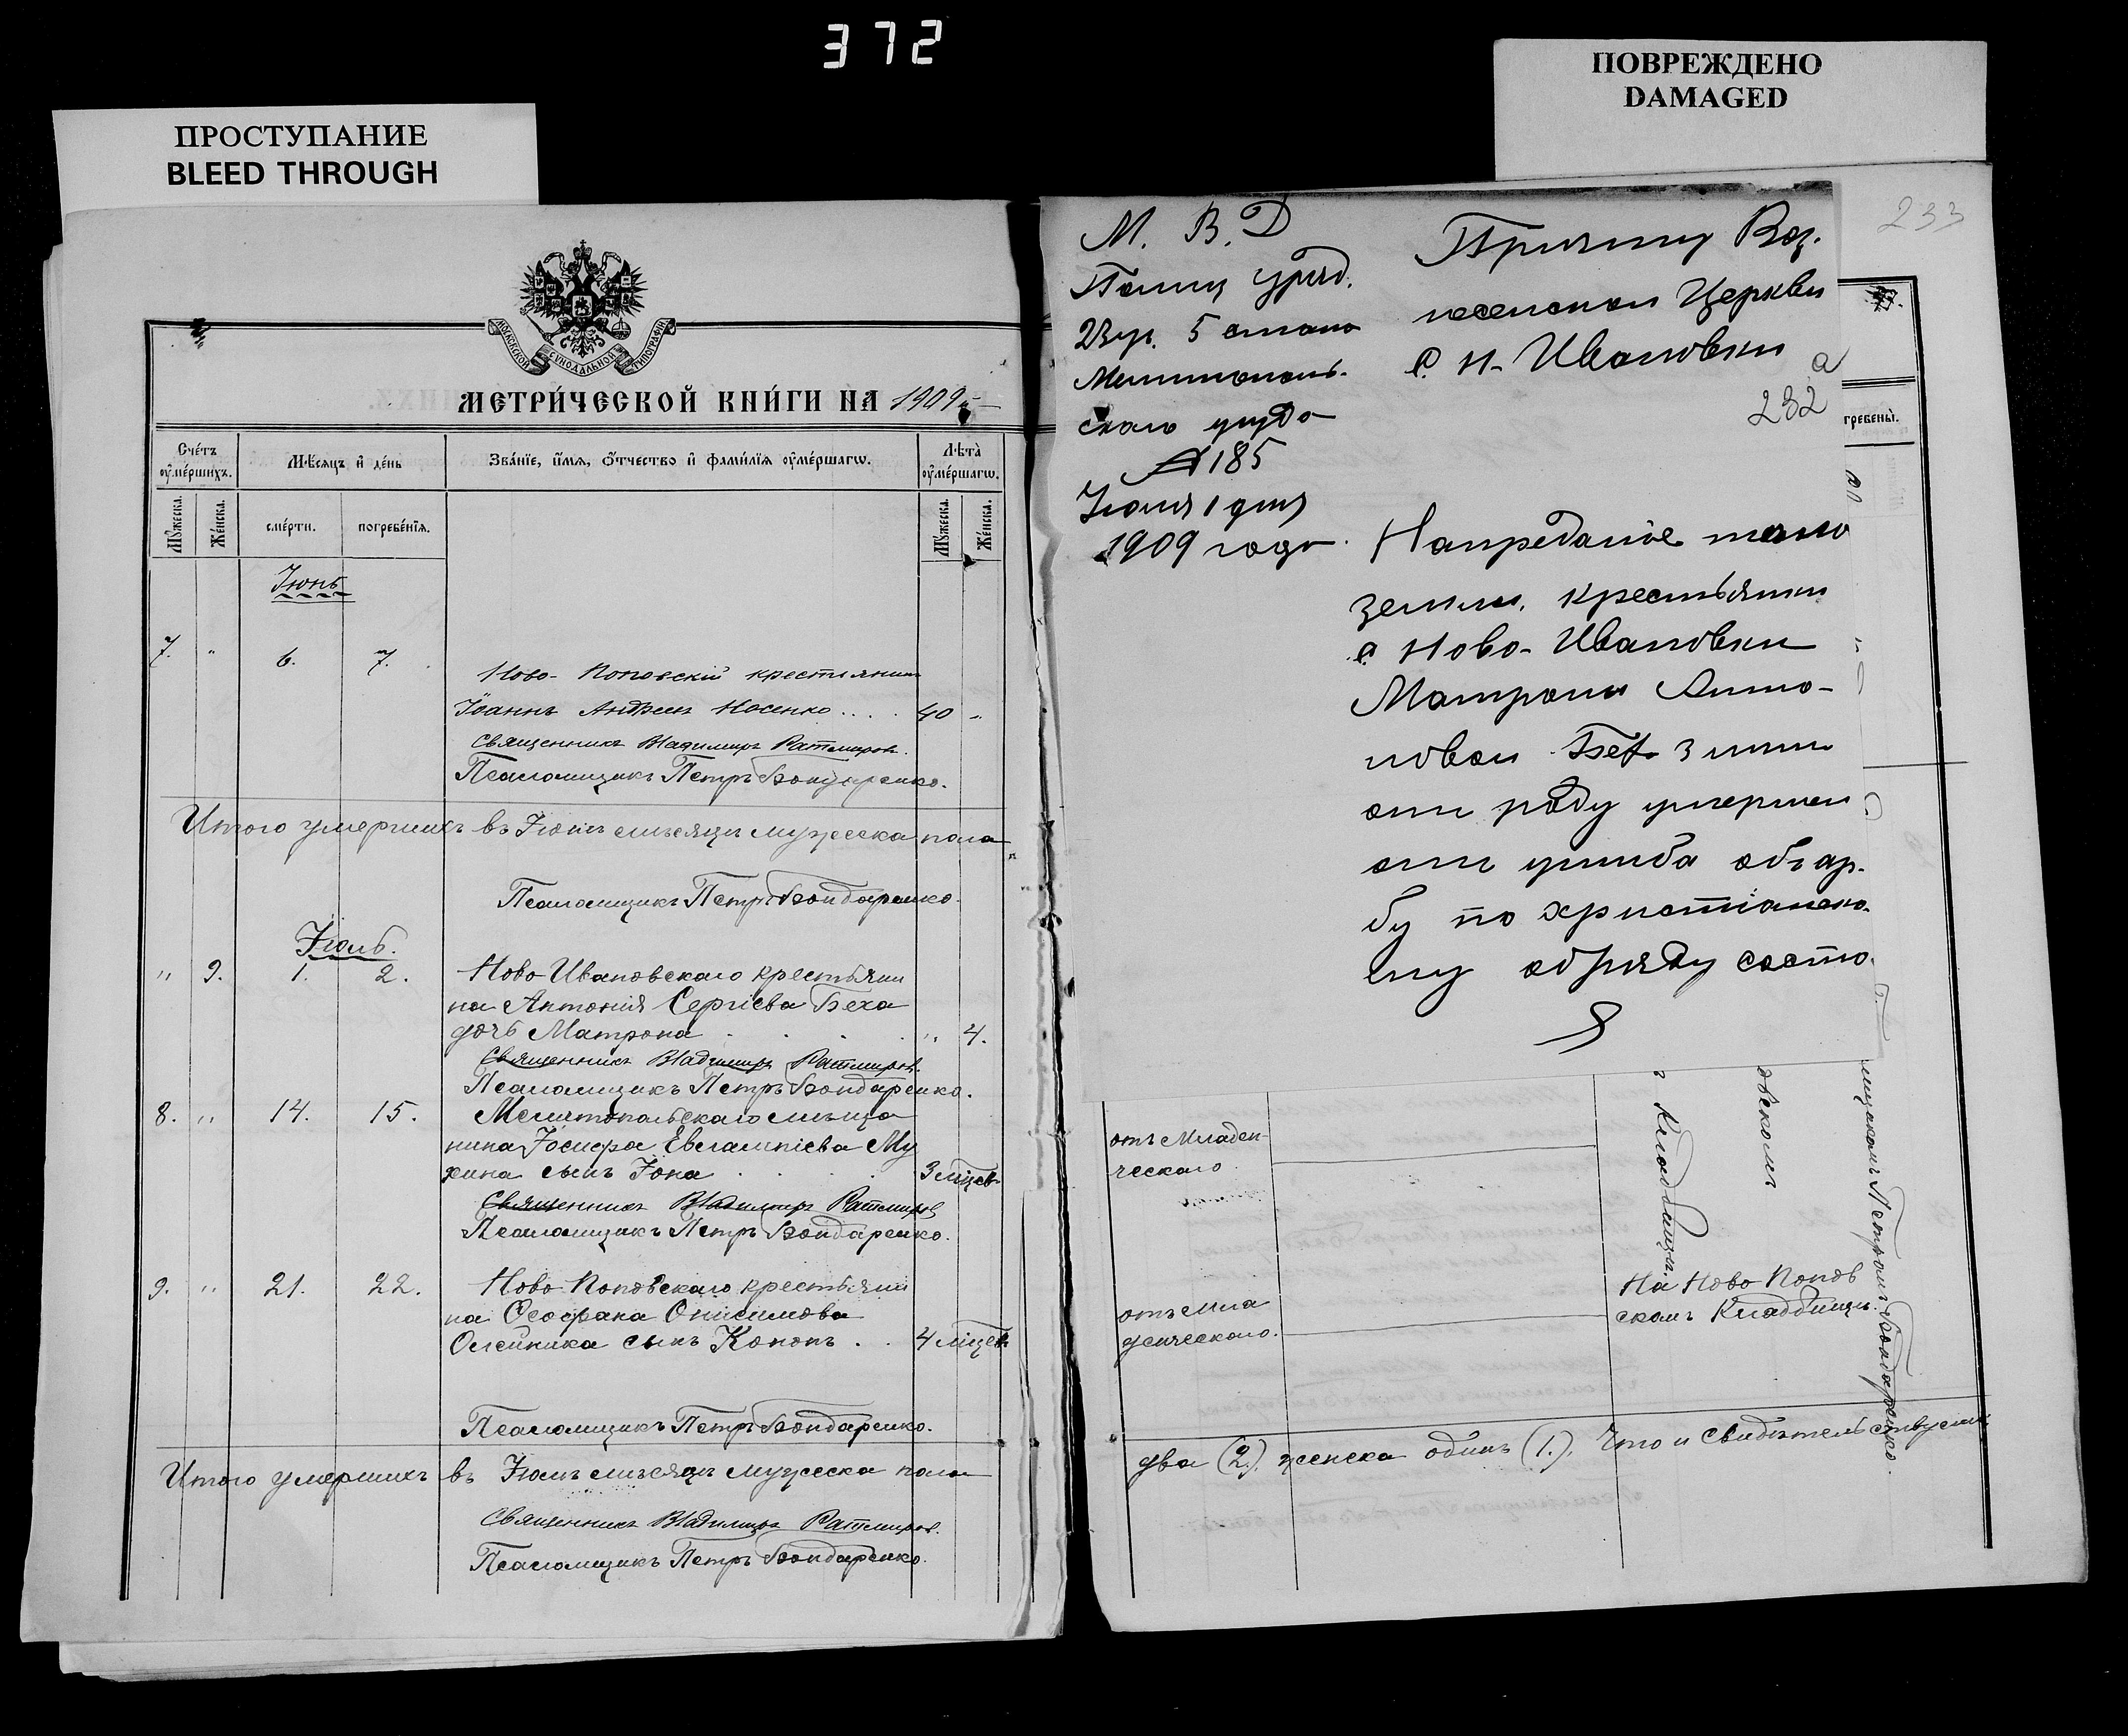 372
ПРОСТУПАНИЕ
BLEED THROUGH
ПОВРЕЖДЕНО
DAMAGED
МОСКОВСКОЙ СУНОДАЛЬНОЙ ТИПОГРАФІИ
МЕТРИ́ЧЕСКОЙ КНИ́ГИ НА 1909 г.
Сче́тъ ѹ҆ме́ршихъ.
Мѣ́сяцъ и҆ де́нь
Зва́нїе, и҆́мѧ, ѻ҆́тчество и҆ фами́лїѧ ѹ҆ме́ршагѡ.
Лѣта̀ ѹ҆ме́ршагѡ.
Мꙋ́жеска. Же́нска. сме́рти. погребе́нїѧ. Мꙋ́жеска. Же́нска.
Іюнь
7. " 6. 7.
Ново-Поповскій крестьянинъ
Іоаннъ Андреевъ Носенко .... 40 "
Священникъ Владимиръ Ратмировъ.
Псаломщикъ Петръ Бондаренко.
Итого умершихъ въ Іюнѣ мѣсяцѣ мужеска пола
Псаломщикъ Петръ Бондаренко.
Іюль.
" 9. 1. 2. Ново-Ивановскаго крестьяни
на Антонія Сергіева Беха
дочь Матрона . . . . " 4.
Священникъ Владимиръ Ратмировъ.
Псаломщикъ Петръ Бондаренко.
8. " 14. 15. Мелитопольскаго мѣща
нина Іосифа Евлампіева Му
хина сынъ Іона . . . 3 мѣсяц.
Священникъ Владимиръ Ратмировъ
Псаломщикъ Петръ Бондаренко.
9. " 21. 22. Ново-Поповскаго крестьяни
на Ѳеофана Онисимова
Олейника сынъ Кононъ . . 4 мѣсяц.
Псаломщикъ Петръ Бондаренко.
Итого умершихъ въ Іюлѣ мѣсяцѣ мужеска пола
Священникъ Владимиръ Ратмировъ.
Псаломщикъ Петръ Бондаренко.
М. В. Д
Полиц уряд.
5 стана
Мелитополь-
скаго уезда
№ 185
Іюля 1 дня
1909 года
Причту Воз.
несенской Церкви
с. Н-Ивановки
а
232
233
Напредание тело
земли, крестьянки
с Ново-Ивановки
Матроны Анто-
новой Бех 3 лет
от роду умершей
от ушиба обь ар-
бу по христіанско-
му обряду
гребены̀.
отъ младен-
ческаго.
Кладбищѣ.
отъ мла
денческаго.
На Ново Попов
скомъ Кладбищѣ.
Петромъ Бондаренко.
два (2.), женска одинъ (1.), Что и Свидѣтельствуемъ